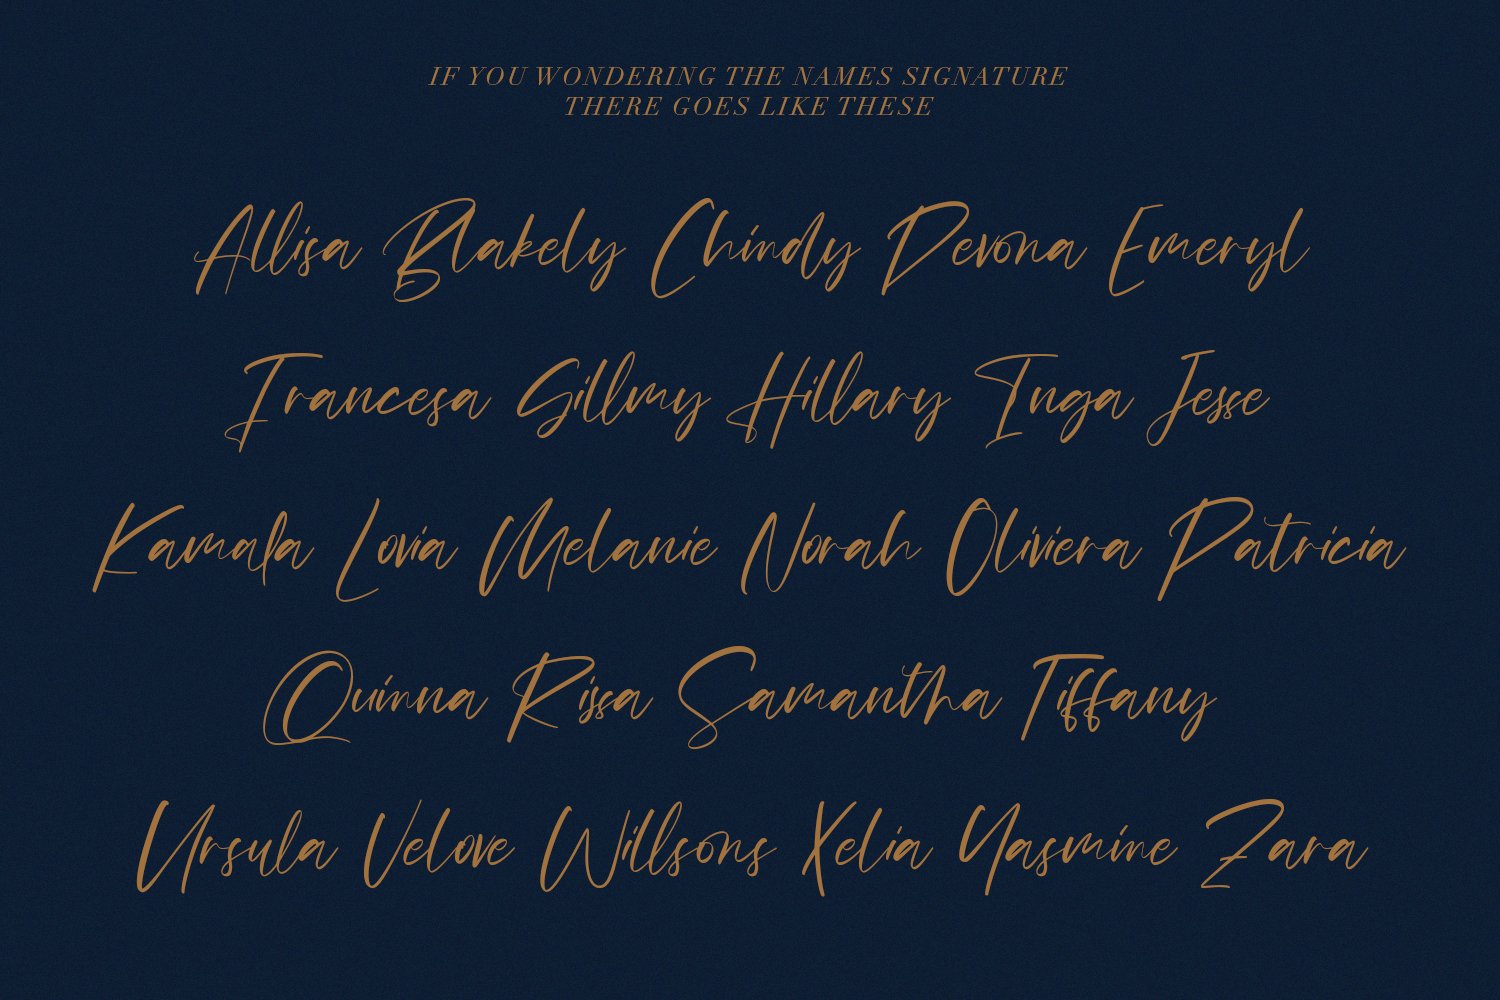 IF YOU WONDERING THE NAMES SIGNATURE
THERE GOES LIKE THESE
Allisa Blakely Chindy Devona Emeryl
Francesa Gillmy Hillary Inga Jesse
Kamala Lovia Melanie Norah Oliviera Patricia
Quinna Rissa Samantha Tiffany
Ursula Velove Willsons Xelia Yasmine Zara